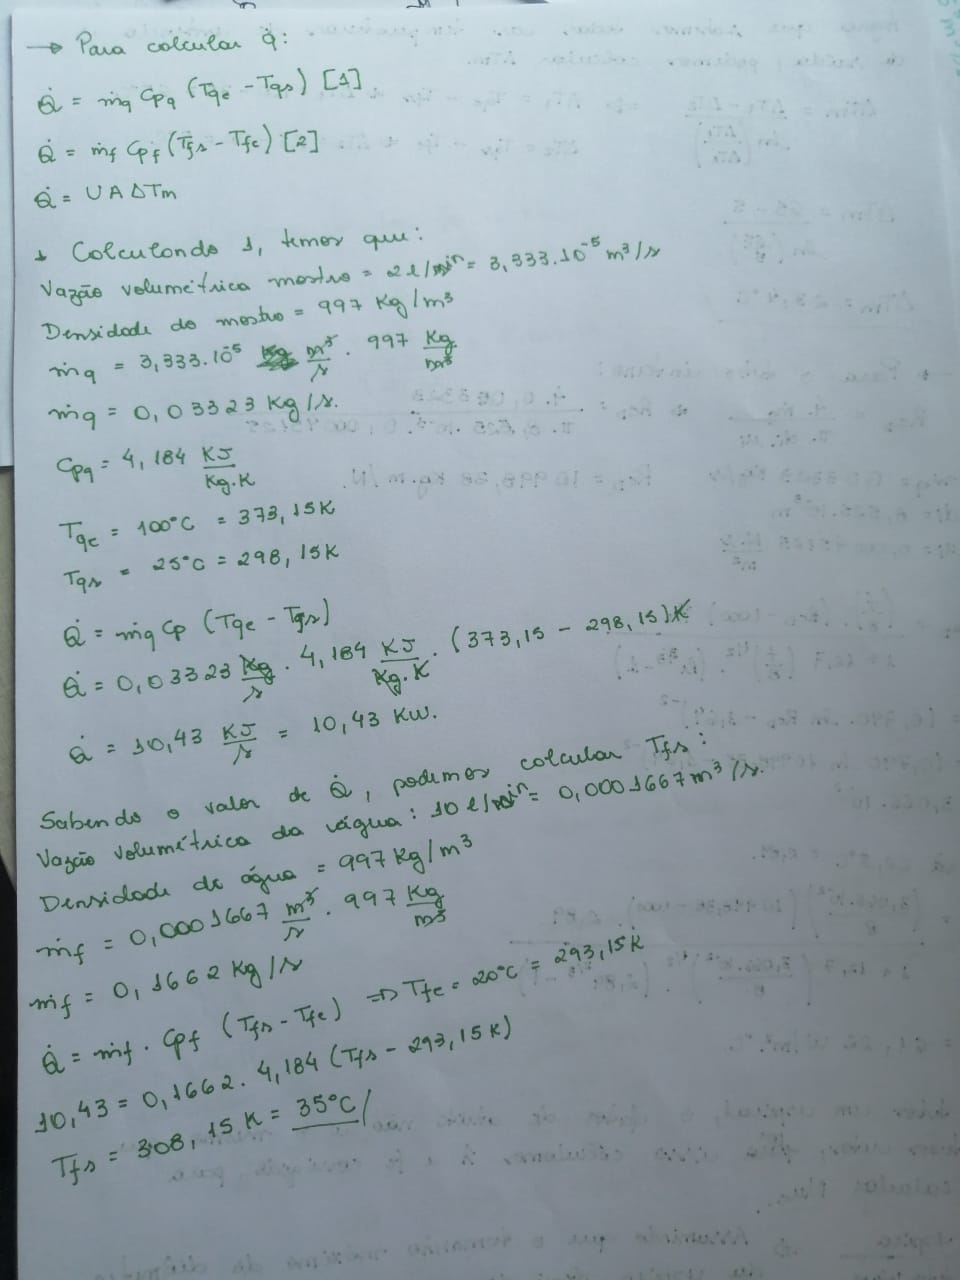 → Para calcular Q̇:
Q̇ = ṁq Cpq (Tqe - Tqs) [1]
Q̇ = ṁf Cpf (Tfs - Tfe) [2]
Q̇ = U A ΔTm
↓ Calculando 1, temos que:
Vazão volumétrica mostro = 2 l/min = 3,333.10⁻⁵ m³/s
Densidade do mostro = 997 Kg/m³
ṁq = 3,333.10⁻⁵ m³/s . 997 Kg/m³
ṁq = 0,03323 Kg/s.
Cpq = 4,184 KJ/Kg.K
Tqe = 100°C = 373,15K
Tqs = 25°C = 298,15K
Q̇ = ṁq Cp (Tqe - Tqs)
Q̇ = 0,03323 Kg/s . 4,184 KJ/Kg.K . (373,15 - 298,15)K
Q̇ = 10,43 KJ/s = 10,43 KW.
Sabendo o valor de Q̇, podemos calcular Tfs:
Vazão volumétrica da água: 10 l/min = 0,0001667 m³/s.
Densidade de água = 997 Kg/m³
ṁf = 0,0001667 m³/s . 997 Kg/m³
ṁf = 0,1662 Kg/s
Q̇ = ṁf . Cpf (Tfs - Tfe) => Tfe = 20°C = 293,15K
10,43 = 0,1662 . 4,184 (Tfs - 293,15K)
Tfs = 308,15 K = 35°C/